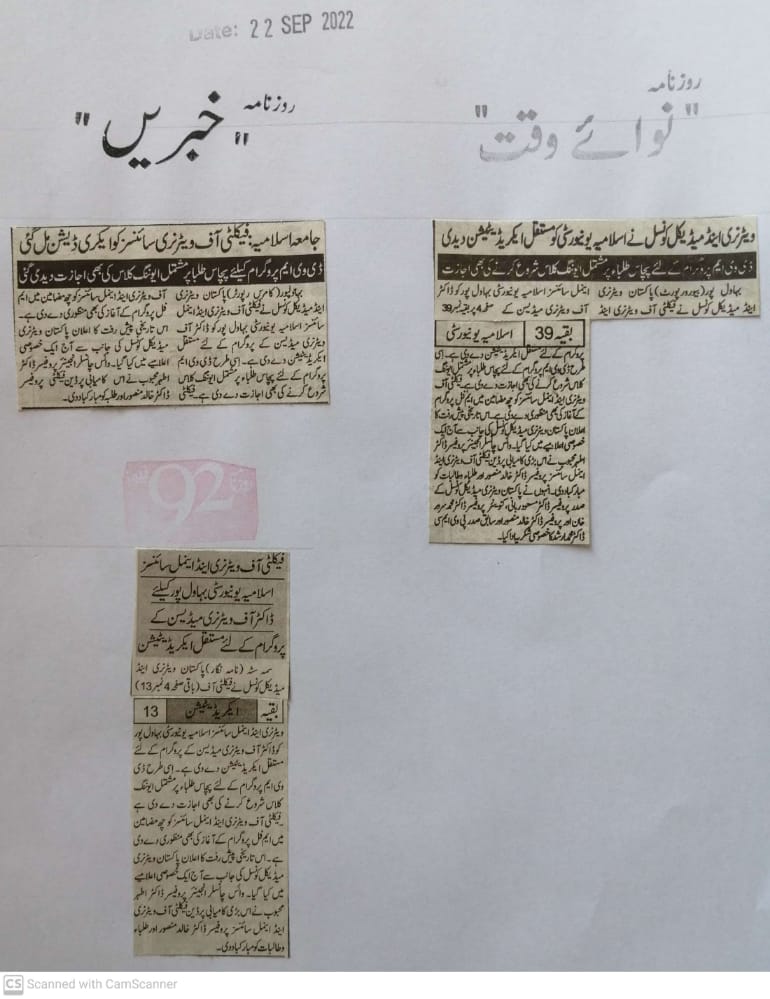 Date: 22 SEP 2022
روزنامہ
"خبریں"
روزنامہ
"نوائے وقت"
جامعہ اسلامیہ: فیکلٹی آف ویٹرنری سائنسز کو ایکری ڈیشن مل گئی
ڈی وی ایم پروگرام کیلئے پچاس طلبا پر مشتمل ایوننگ کلاس کی بھی اجازت دیدی گئی
بہاولپور (کامرس رپورٹر) پاکستان ویٹرنری
اینڈ میڈیکل کونسل نے فیکلٹی آف ویٹرنری اینڈ اینمل
سائنسز اسلامیہ یونیورسٹی بہاول پور کو ڈاکٹر آف
ویٹرنری میڈیسن کے پروگرام کے لئے مستقل
ایکریڈیٹیشن دے دی ہے۔ اسی طرح ڈی وی ایم
پروگرام کے لئے پچاس طلباء پر مشتمل ایوننگ کلاس
شروع کرنے کی بھی اجازت دے دی ہے۔ فیکلٹی
آف ویٹرنری اینڈ اینمل سائنسز کو چھ مضامین میں ایم
فل پروگرام کے آغاز کی بھی منظوری دے دی ہے۔
اس تاریخی پیش رفت کا اعلان پاکستان ویٹرنری
میڈیکل کونسل کی جانب سے آج ایک خصوصی
اعلامیے میں کیا گیا۔ وائس چانسلر انجینئر پروفیسر ڈاکٹر
اطہر محبوب نے اس کامیابی پر ڈین فیکلٹی پروفیسر
ڈاکٹر خالد منصور اور طلبہ کو مبارکباد دی۔
ویٹرنری اینڈ میڈیکل کونسل نے اسلامیہ یونیورسٹی کو مستقل ایکریڈیٹیشن دیدی
ڈی وی ایم پروگرام کے لئے پچاس طلباء پر مشتمل ایوننگ کلاس شروع کرنے کی بھی اجازت
بہاول پور (بیورو رپورٹ) پاکستان ویٹرنری
اینڈ میڈیکل کونسل نے فیکلٹی آف ویٹرنری اینڈ
اینمل سائنسز اسلامیہ یونیورسٹی بہاول پور کو ڈاکٹر
آف ویٹرنری میڈیسن کے صفحہ 4 پر بقیہ نمبر 39
بقیہ 39 اسلامیہ یونیورسٹی
پروگرام کے لئے مستقل ایکریڈیٹیشن دے دی ہے۔ اسی
طرح ڈی وی ایم پروگرام کے لئے پچاس طلباء پر مشتمل ایوننگ
کلاس شروع کرنے کی بھی اجازت دے دی ہے۔ فیکلٹی آف
ویٹرنری اینڈ اینمل سائنسز کو چھ مضامین میں ایم فل پروگرام
کے آغاز کی بھی منظوری دے دی ہے۔ اس تاریخی پیش رفت کا
اعلان پاکستان ویٹرنری میڈیکل کونسل کی جانب سے آج ایک
خصوصی اعلامیے میں کیا گیا۔ وائس چانسلر انجینئر پروفیسر ڈاکٹر
اطہر محبوب نے اس بڑی کامیابی پر ڈین فیکلٹی آف ویٹرنری اینڈ
اینمل سائنسز پروفیسر ڈاکٹر خالد منصور اور طلباء و طالبات کو
مبارکباد دی۔ انہوں نے پاکستان ویٹرنری میڈیکل کونسل کے
صدر پروفیسر ڈاکٹر مسعود ربانی، کنوینئر پروفیسر ڈاکٹر محمد سرور
خان اور پروفیسر ڈاکٹر خالد منصور اور سابق صدر پی وی ایم سی
ڈاکٹر محمد ارشد کا خصوصی شکریہ ادا کیا۔
92
فیکلٹی آف ویٹرنری اینڈ اینمل سائنسز
اسلامیہ یونیورسٹی بہاول پور کیلئے
ڈاکٹر آف ویٹرنری میڈیسن کے
پروگرام کے لئے مستقل ایکریڈیٹیشن
سمہ سٹہ (نامہ نگار) پاکستان ویٹرنری اینڈ
میڈیکل کونسل نے فیکلٹی آف (باقی صفحہ 4 نمبر 13)
بقیہ ایکریڈیٹیشن 13
ویٹرنری اینڈ اینمل سائنسز اسلامیہ یونیورسٹی بہاول پور
کو ڈاکٹر آف ویٹرنری میڈیسن کے پروگرام کے لئے
مستقل ایکریڈیٹیشن دے دی ہے۔ اسی طرح ڈی
وی ایم پروگرام کے لئے پچاس طلباء پر مشتمل ایوننگ
کلاس شروع کرنے کی بھی اجازت دے دی ہے
۔فیکلٹی آف ویٹرنری اینڈ اینمل سائنسز کو چھ مضامین
میں ایم فل پروگرام کے آغاز کی بھی منظوری دے دی
ہے۔ اس تاریخی پیش رفت کا اعلان پاکستان ویٹرنری
میڈیکل کونسل کی جانب سے آج ایک خصوصی اعلامیے
میں کیا گیا۔ وائس چانسلر انجینئر پروفیسر ڈاکٹر اطہر
محبوب نے اس بڑی کامیابی پر ڈین فیکلٹی آف ویٹرنری
اینڈ اینمل سائنسز پروفیسر ڈاکٹر خالد منصور اور طلباء
و طالبات کو مبارکباد دی۔
CS Scanned with CamScanner